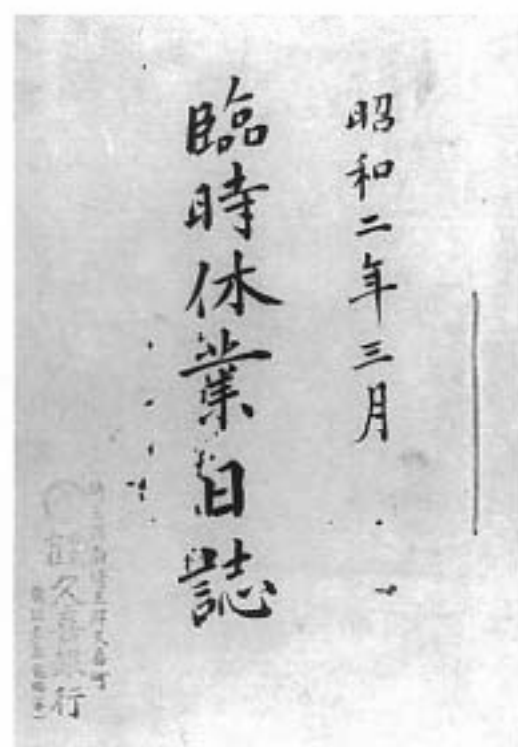 昭和二年三月
臨時休業日誌
久喜銀行